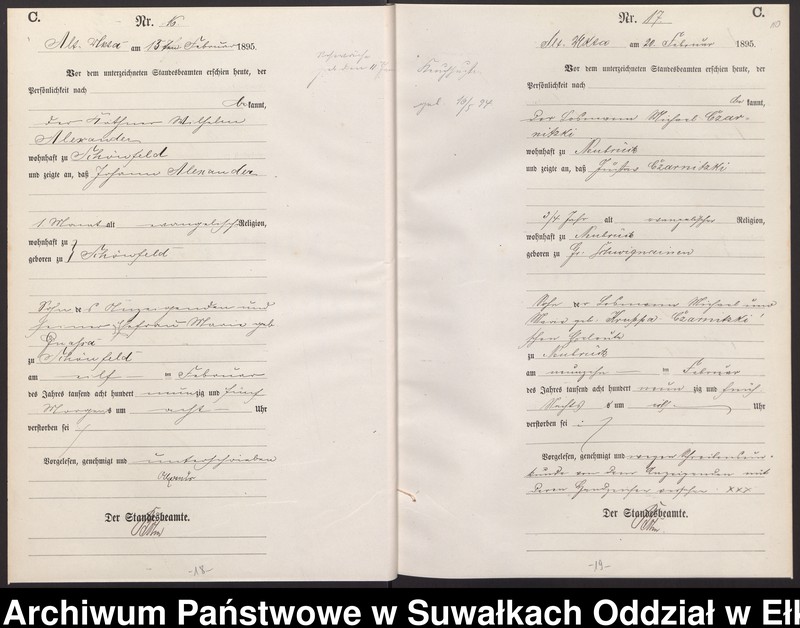 C.
Nr. 16
Alt. Uxza am 15ten Februar 1895.
Vor dem unterzeichneten Standesbeamten erschien heute, der
Persönlichkeit nach
be kannt,
der Käthner Wilhelm
Alexander
wohnhaft zu Schönfeld
und zeigte an, daß Johann Alexander
1 Monat alt evangelischer Religion,
wohnhaft zu
geboren zu } Schönfeld
Sohn des Anzeigenden und
seiner Ehefrau Marie geb
zu Schönfeld
am elf ten Februar
des Jahres tausend acht hundert neunzig und fünf
Morgens um acht Uhr
verstorben sei
Vorgelesen, genehmigt und unterschrieben
Der Standesbeamte.
-18-
C.
Nr. 17
am 20. Februar 1895.
Vor dem unterzeichneten Standesbeamten erschien heute, der
Persönlichkeit nach
be kannt,
der Losmann Michael Czar-
nitzki
wohnhaft zu Neubrück
und zeigte an, daß Gustav Czarnitzki
3/4 Jahr alt evangelischer Religion,
wohnhaft zu Neubrück
geboren zu Gr. Schwignainen
Sohn der Losmann Michael und
geb. Kruppa Czarnitzki'
schen Eheleute
zu Neubrück
am neunzehn ten Februar
des Jahres tausend acht hundert neun zig und fünf
Nachts um elf Uhr
verstorben sei
Vorgelesen, genehmigt und wegen Schreibensun-
kunde von dem Anzeigenden mit
deren Handzeichen versehen: XXX
Der Standesbeamte.
-19-
Archiwum Państwowe w Suwałkach Oddział w Ełk